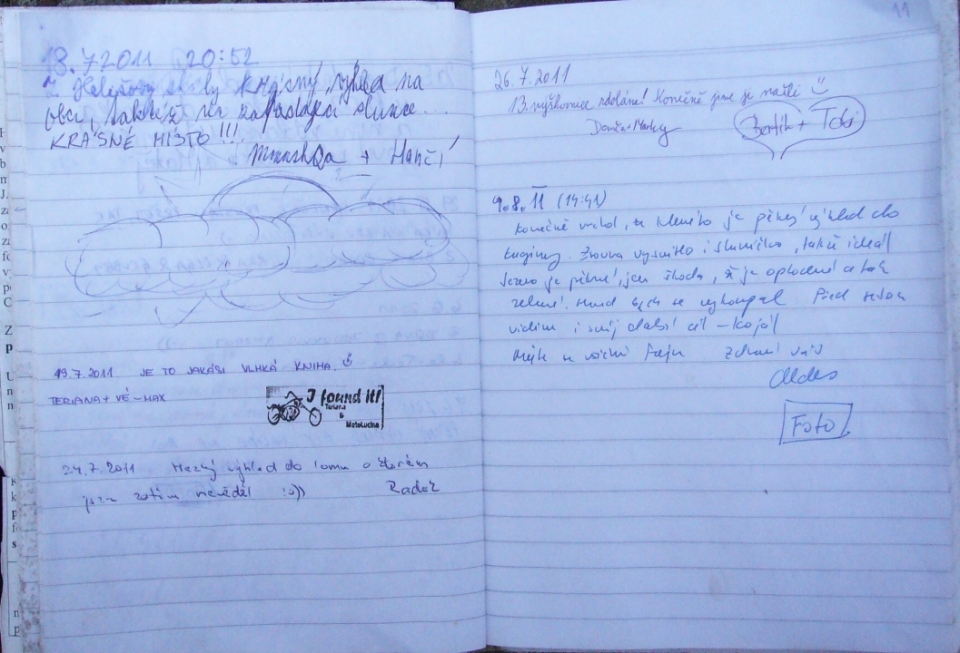 13.7.2011 20:52
krásný výhled na
obci, zapadající slunce...
KRÁSNÉ MÍSTO!!!
+ Hančí
19.7.2011 JE TO JAKÁSI VLHKÁ KNIHA.
TERIANA + VÉ-MAX
I found it!
Teriana
&
MotoLucina
24.7.2011 Hezký výhled do lomu o kterém
jsem zatím nevěděl :o))
11
26.7.2011
13. zdolána! Konečně jsme se našli
Bertík + Toki
9.8.11 (14:41)
Konečně vrchol, ze kterého je pěkný výhled do
krajiny. Zrovna vysvitlo i sluníčko, takže ideál
Jezero je pěkné, jen škoda, že je oplocené a tak
zelené. Hned bych se vykoupal. Před sebou
vidím i svůj další cíl -
Mějte se všichni fajn Zdraví vás
Foto